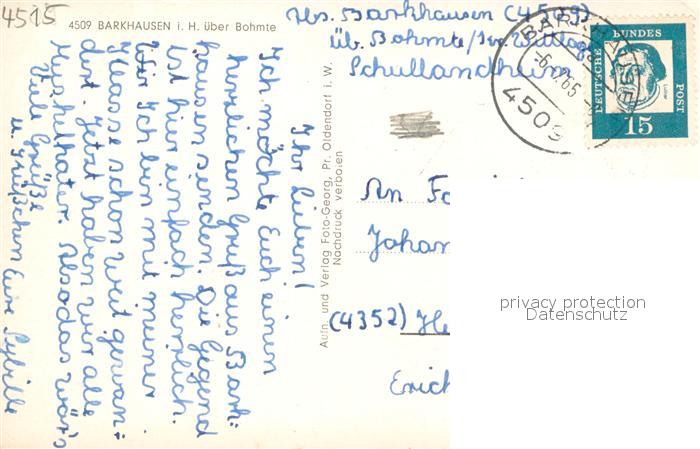 4515
4509 BARKHAUSEN i. H. über Bohmte
Abs. Barkhausen (4509)
üb. Bohmte/
Schullandheim
BARKHAUSEN
-6. 65
4509
DEUTSCHE BUNDES POST
Luther
15
Ihr Lieben!
Ich möchte Euch einen
herrlichen Gruß aus Bark-
hausen senden. Die Gegend
ist hier einfach herrlich.
Wir Ich bin mit meiner
Klasse schon weit gewan-
dert. Jetzt haben wir alle
Muskelkater. Also das wär's
Viele Grüße
u. Grüßchen Eure Sybille
Aufn. und Verlag Foto-Georg, Pr. Oldendorf i. W.
Nachdruck verboten
An Fa
Johan
(4352) He
Erich
privacy protection
Datenschutz